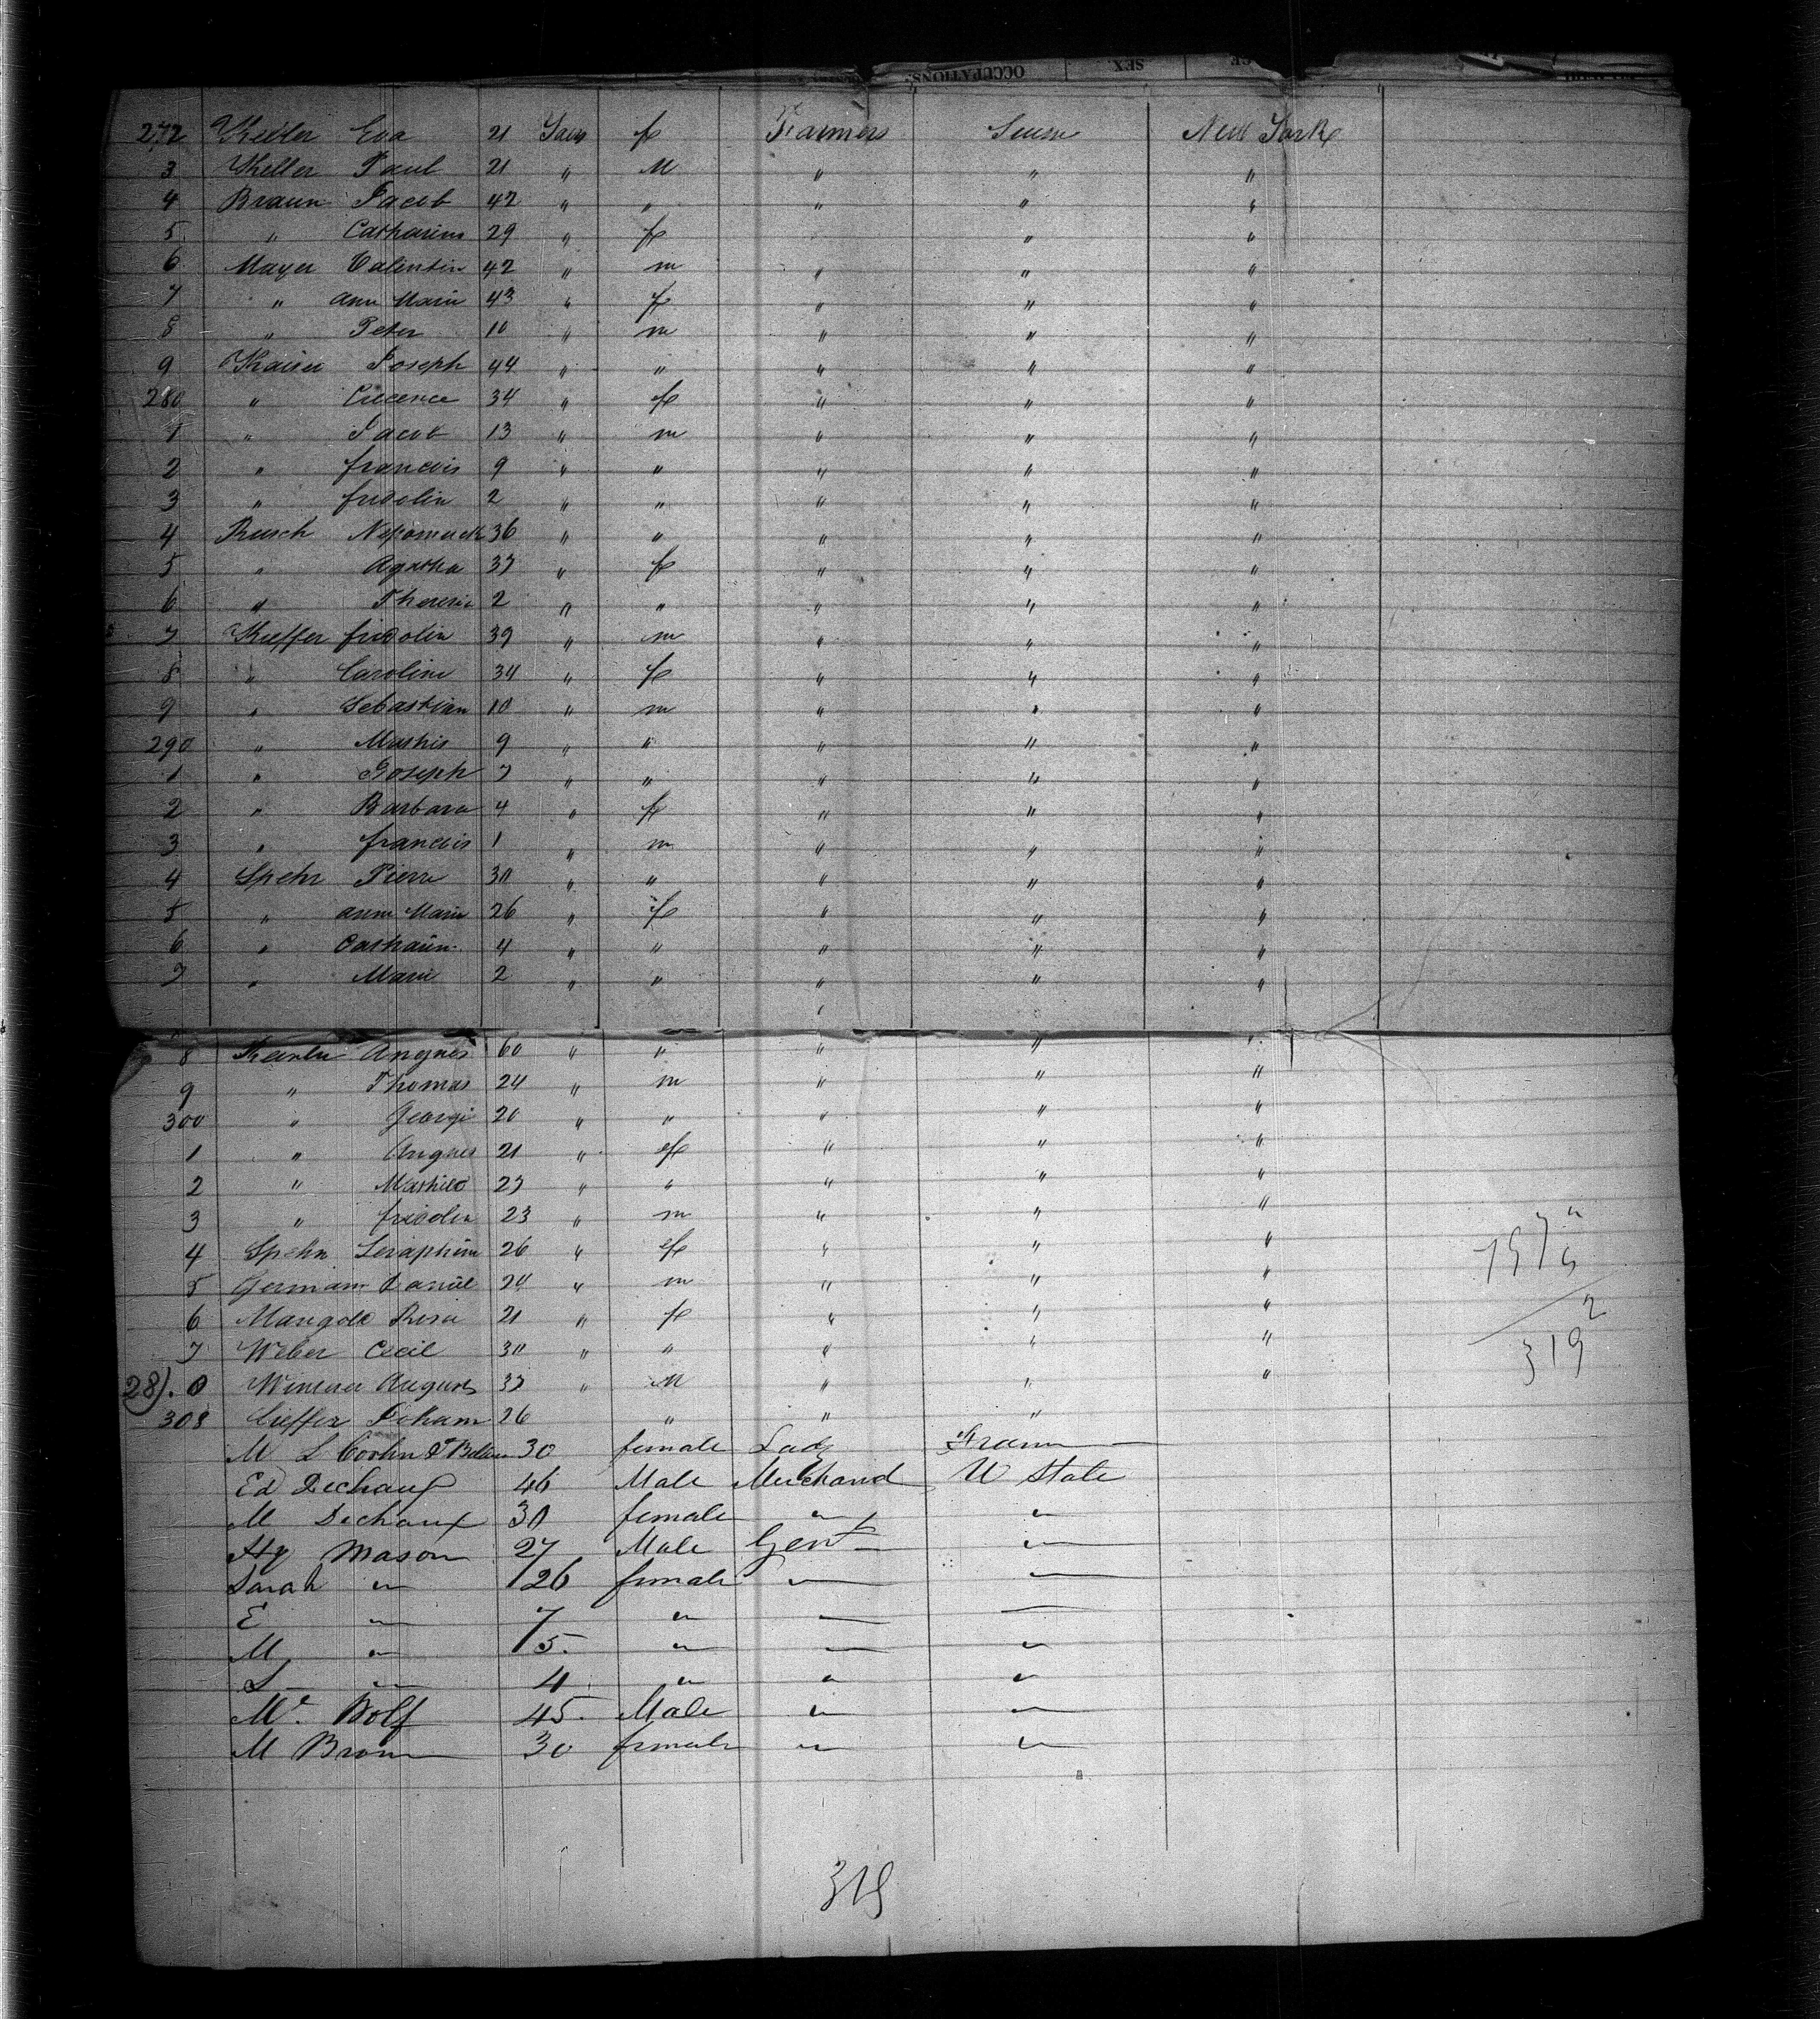 OCCUPATIONS. SEX.
272 Keller Eva 21 f Farmers New York
3 Keller Paul 21 " M " " "
4 Braun Jacob 42 " " " " "
5 " Catharina 29 " f " "
6 Mayer Valentin 42 " m " " "
7 " Ann Marie 43 " f " " "
8 " Peter 10 " m " " "
9 Kaiser Joseph 44 " " " " "
280 " 34 " f " " "
1 " Jacob 13 " m " " "
2 " francois 9 " " " " "
3 " fridolin 2 " " " " "
4 Rusch Nepomuck 36 " " " " "
5 " Agatha 37 " f " " "
6 " Theresia 2 " " " " "
7 Kieffer fridolin 39 " m " " "
8 " Caroline 34 " f " " "
9 " Sebastian 10 " m " " "
290 " Mathis 9 " " " " "
1 " Joseph 7 " " " " "
2 " Barbara 4 " f " " "
3 " francois 1 " m " " "
4 Spehn Pierre 30 " " " " "
5 " ann Marie 26 " f " " "
6 " Catharin. 4 " " " " "
7 " Marie 2 " " " " "
8 Angnes 60 " " " " "
9 " Thomas 24 " m " " "
300 " George 20 " " " " "
1 " Angnes 21 " f " " "
2 " 27 " " " " "
3 " fridolin 23 " m " " "
4 Spehn Seraphim 26 " f " " "
5 Germain Daniel 24 " m " " "
6 Mangold Rosa 21 " f " " "
7 Weber Cecil 30 " " " " "
28). 0 August 37 " M " " "
308 Kieffer Johann 26 " " "
M L 30 female Lady
Ed Dechaux 46 Male Merchand U State
M Dechaux 30 female " "
Hy Mason 27 Male Gent "
Sarah " 26 female " "
E " 7 " " "
M " 5 " " "
L " 4 " " "
Mr. Wolf 45 Male " "
M Brown 30 female " "
2
319
319